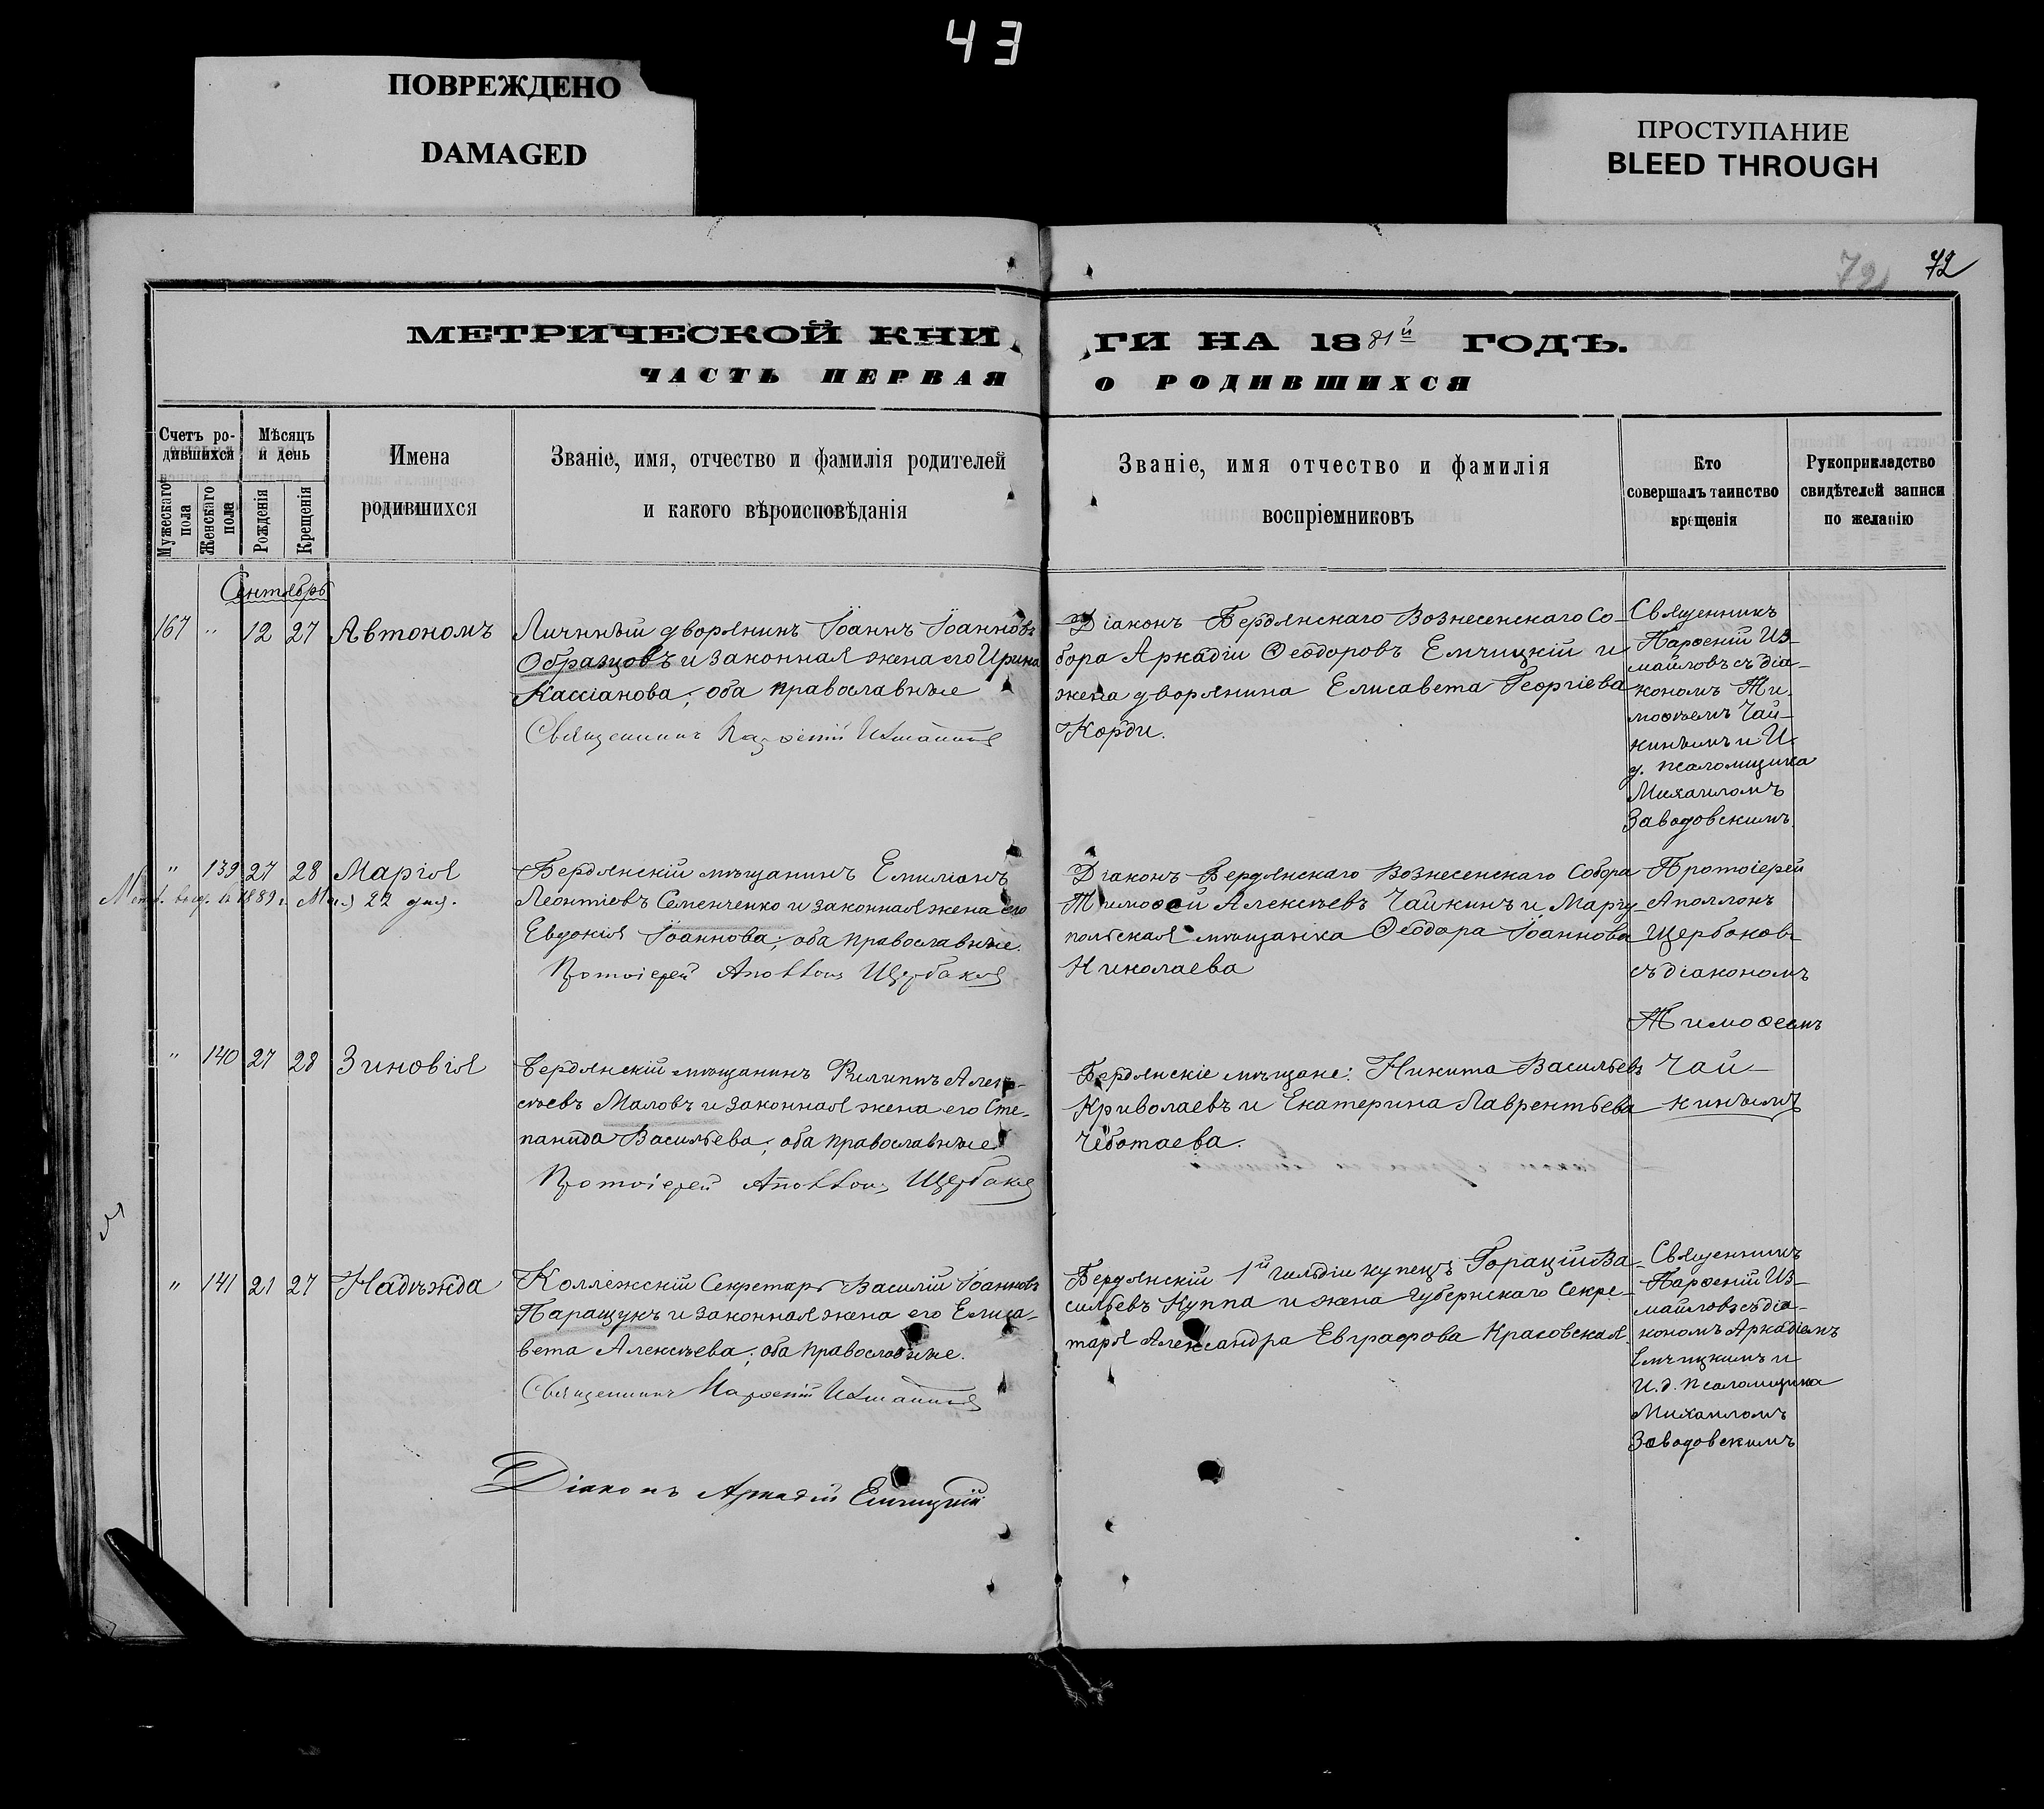 43
ПОВРЕЖДЕНО
DAMAGED
ПРОСТУПАНИЕ
BLEED THROUGH
72
72
МЕТРИЧЕСКОЙ КНИ
ГИ НА 1881й ГОДЪ.
ЧАСТЬ ПЕРВАЯ
О РОДИВШИХСЯ
Счетъ ро-
дившихся
Мужескаго пола
Женскаго пола
Мѣсяцъ
и день
Рожденія
Крещенія
Имена
родившихся
Званіе, имя, отчество и фамилія родителей
и какого вѣроисповѣданія
Званіе, имя отчество и фамилія
воспріемниковъ
Кто
совершалъ таинство
крещенія
Рукоприкладство
свидѣтелей записи
по желанію
Сентябрь
167 " 12 27 Автономъ
Личный дворянинъ Іоаннъ Іоанновъ
Образцовъ и законная жена его Ирина
Кассіанова; оба православные
Священникъ
Діаконъ Бердянскаго Вознесенскаго Со-
бора Аркадіи Ѳеодоровъ Емчицкій и
жена дворянина Елисавета Георгіева
Корди.
Священникъ
Парѳеній Из-
майловъ съ діа-
кономъ Ти-
моѳеемъ Чай-
кинымъ и И.
д. псаломщика
Михаиломъ
Заводовскимъ.
" 139 27 28 Марія
22 дня.
Бердянскій мѣщанинъ Емиліанъ
Леонтіевъ Семенченко и законная жена его
Евдокія Іоаннова; оба православные.
Протоіерей Аполлонъ Щербаковъ
Діаконъ Бердянскаго Вознесенскаго Собора
Тимоѳей Алексѣевъ Чайкинъ и Маріу-
польская мѣщанка Ѳеодора Іоаннова
Николаева
Протоіерей
Аполлонъ
Щербаковъ
съ діакономъ
Тимоѳеемъ
Чай-
кинымъ
" 140 27 28 Зиновія
Бердянскій мѣщанинъ Филиппъ Алек-
сѣевъ Маловъ и законная жена его Сте-
панида Васильева; оба православные
Протоіерей Аполлонъ Щербаковъ
Бердянскіе мѣщане: Никита Васильевъ
Криволаевъ и Екатерина Лаврентьева
Чеботаева.
" 141 21 27 Надѣжда
Коллежскій Секретарь Василій Іоанновъ
Паращукъ и законная жена его Елиса-
вета Алексѣева; оба православные.
Священникъ Парѳеній
Бердянскій 1й гильдіи купецъ Горацій Ва-
сильевъ Куппа и жена Губернскаго Секре-
таря Александра Евграфова Красовская.
Священникъ
Парѳеній Из-
майловъ съ діа-
кономъ Аркадіемъ
Емчицкимъ и
И. д. псаломщика
Михаиломъ
Заводовскимъ
Діаконъ Аркадій Емчицкій